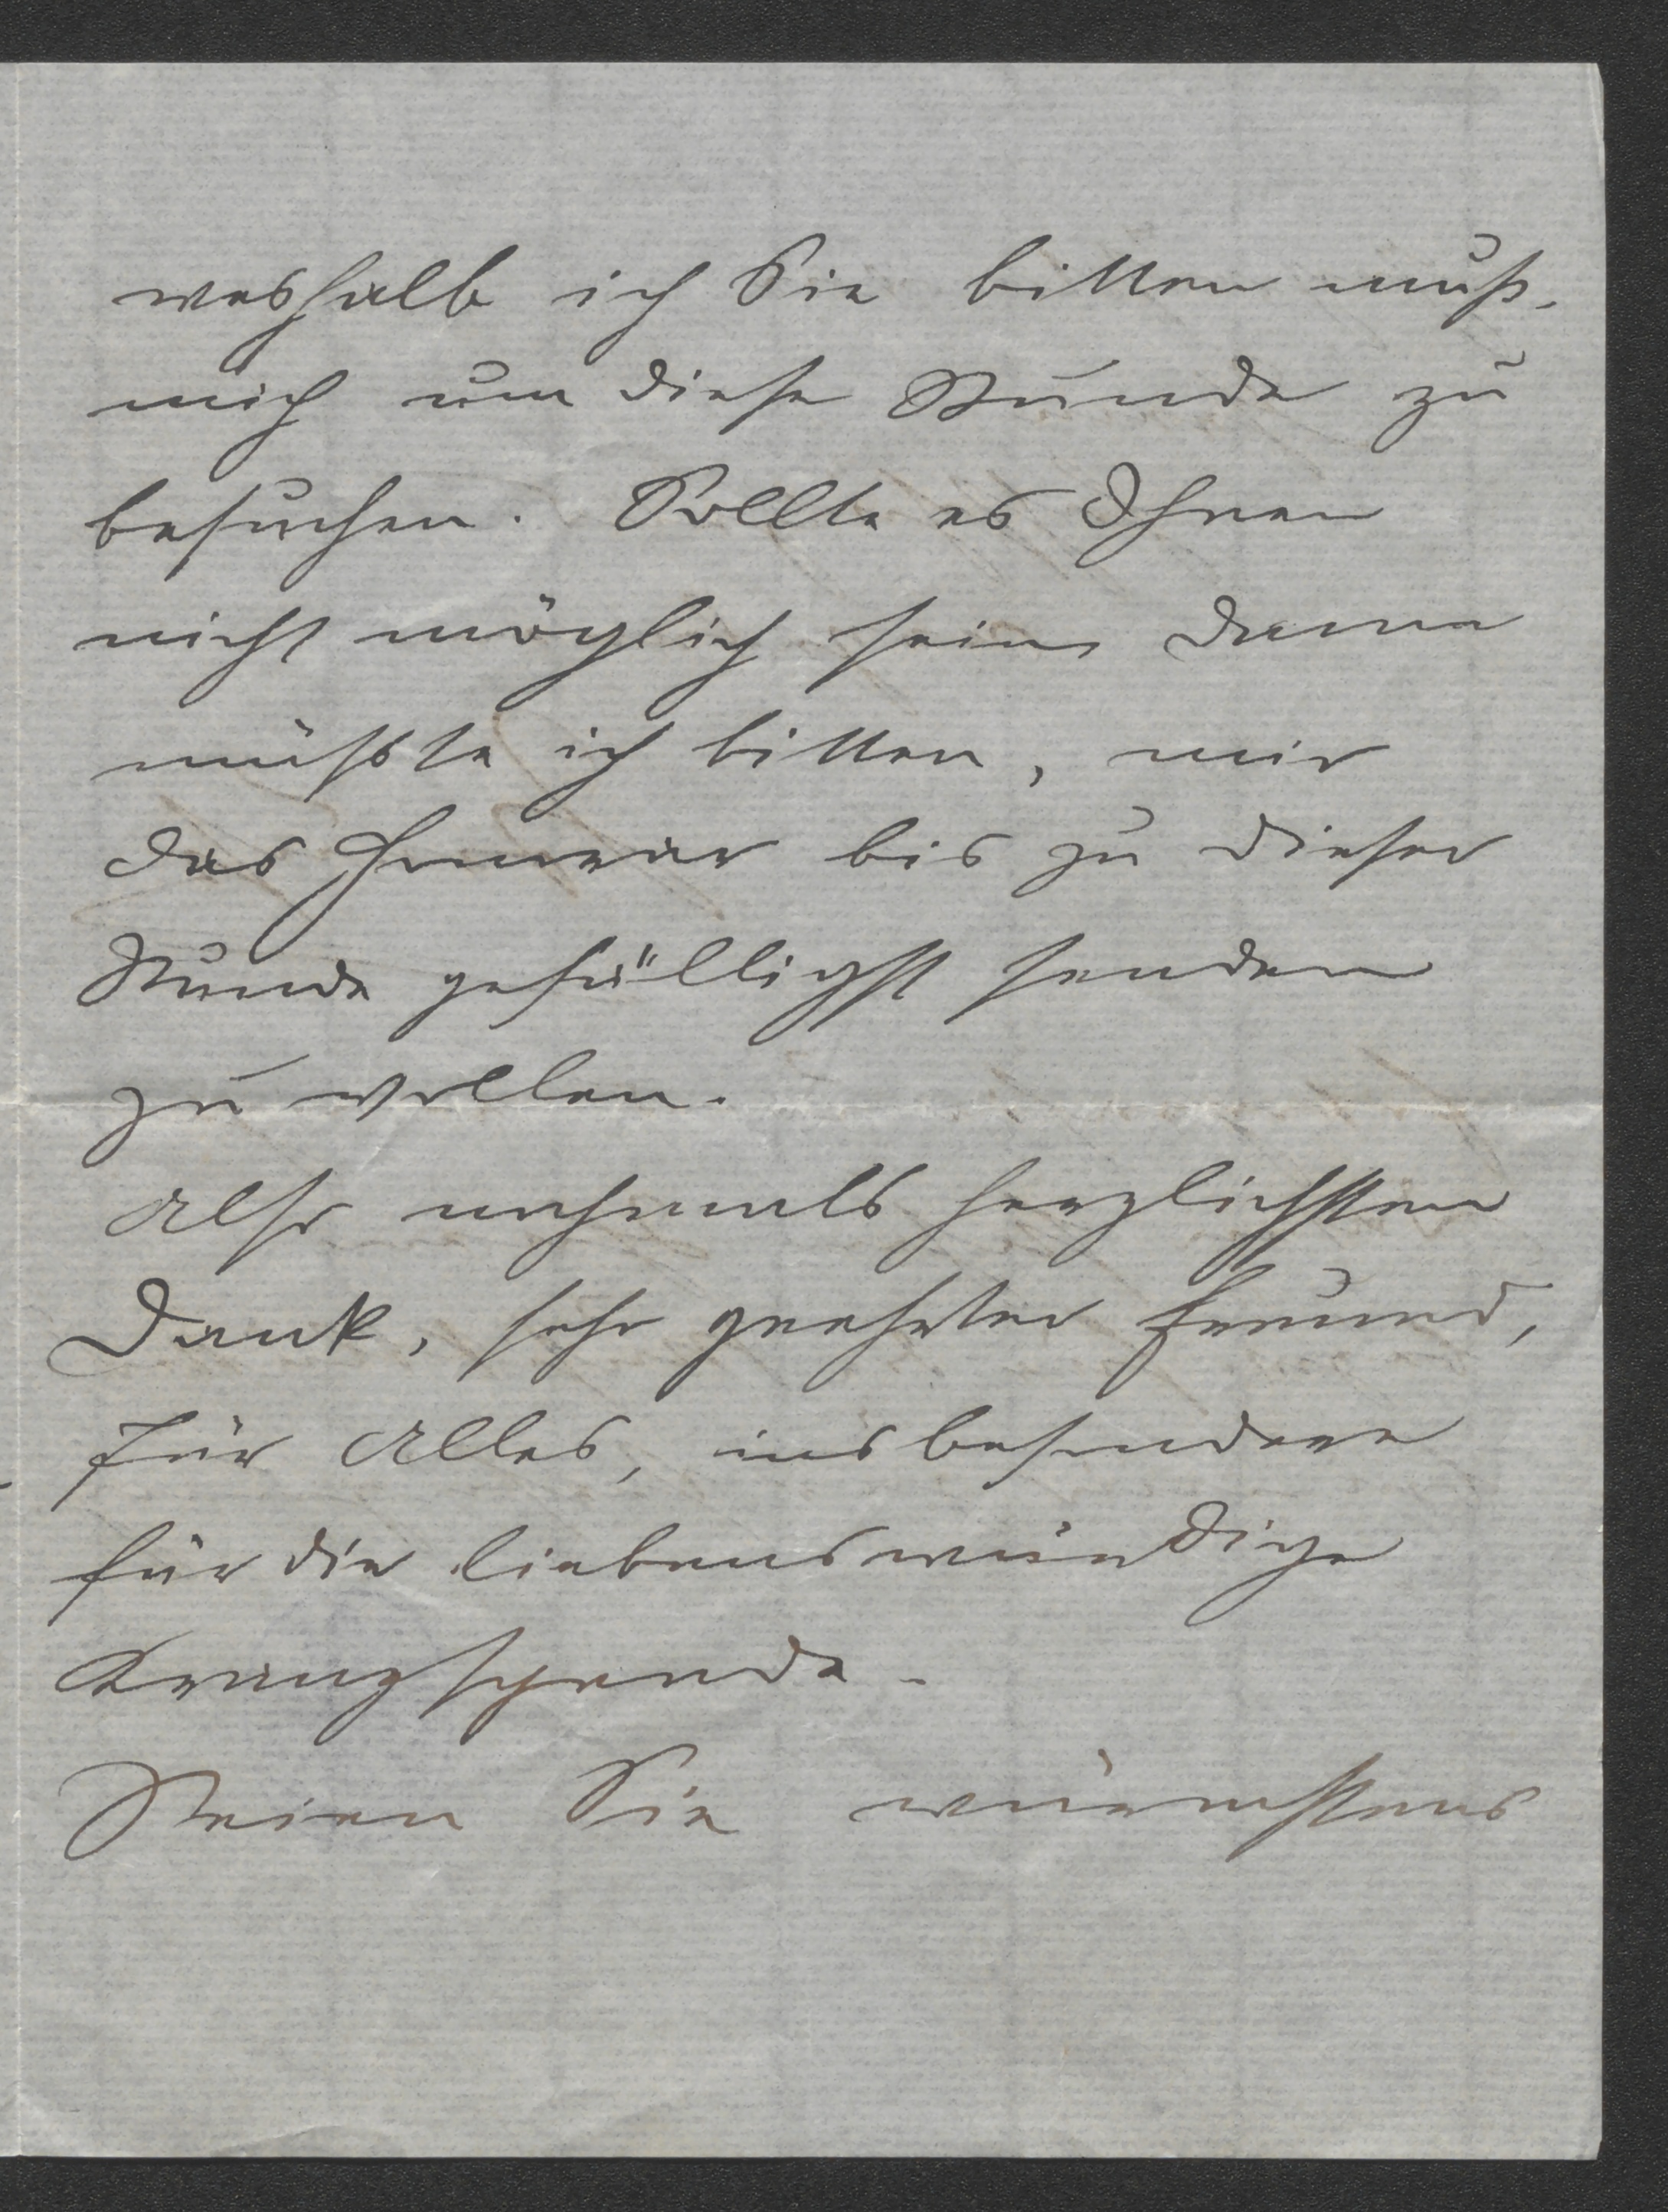 weshalb ich Sie bitten muß,
mich um diese Stunde zu
besuchen. Sollte es Ihnen
nicht möglich sein, dann
müßte ich bitten, mir
das Honorar bis zu dieser
Stunde gefälligst senden
zu wollen.
Also nochmals herzlichsten
Dank, sehr geehrter Freund,
für Alles, insbesondere
für die liebenswürdige
Kranzspende.
Seien Sie wärmstens